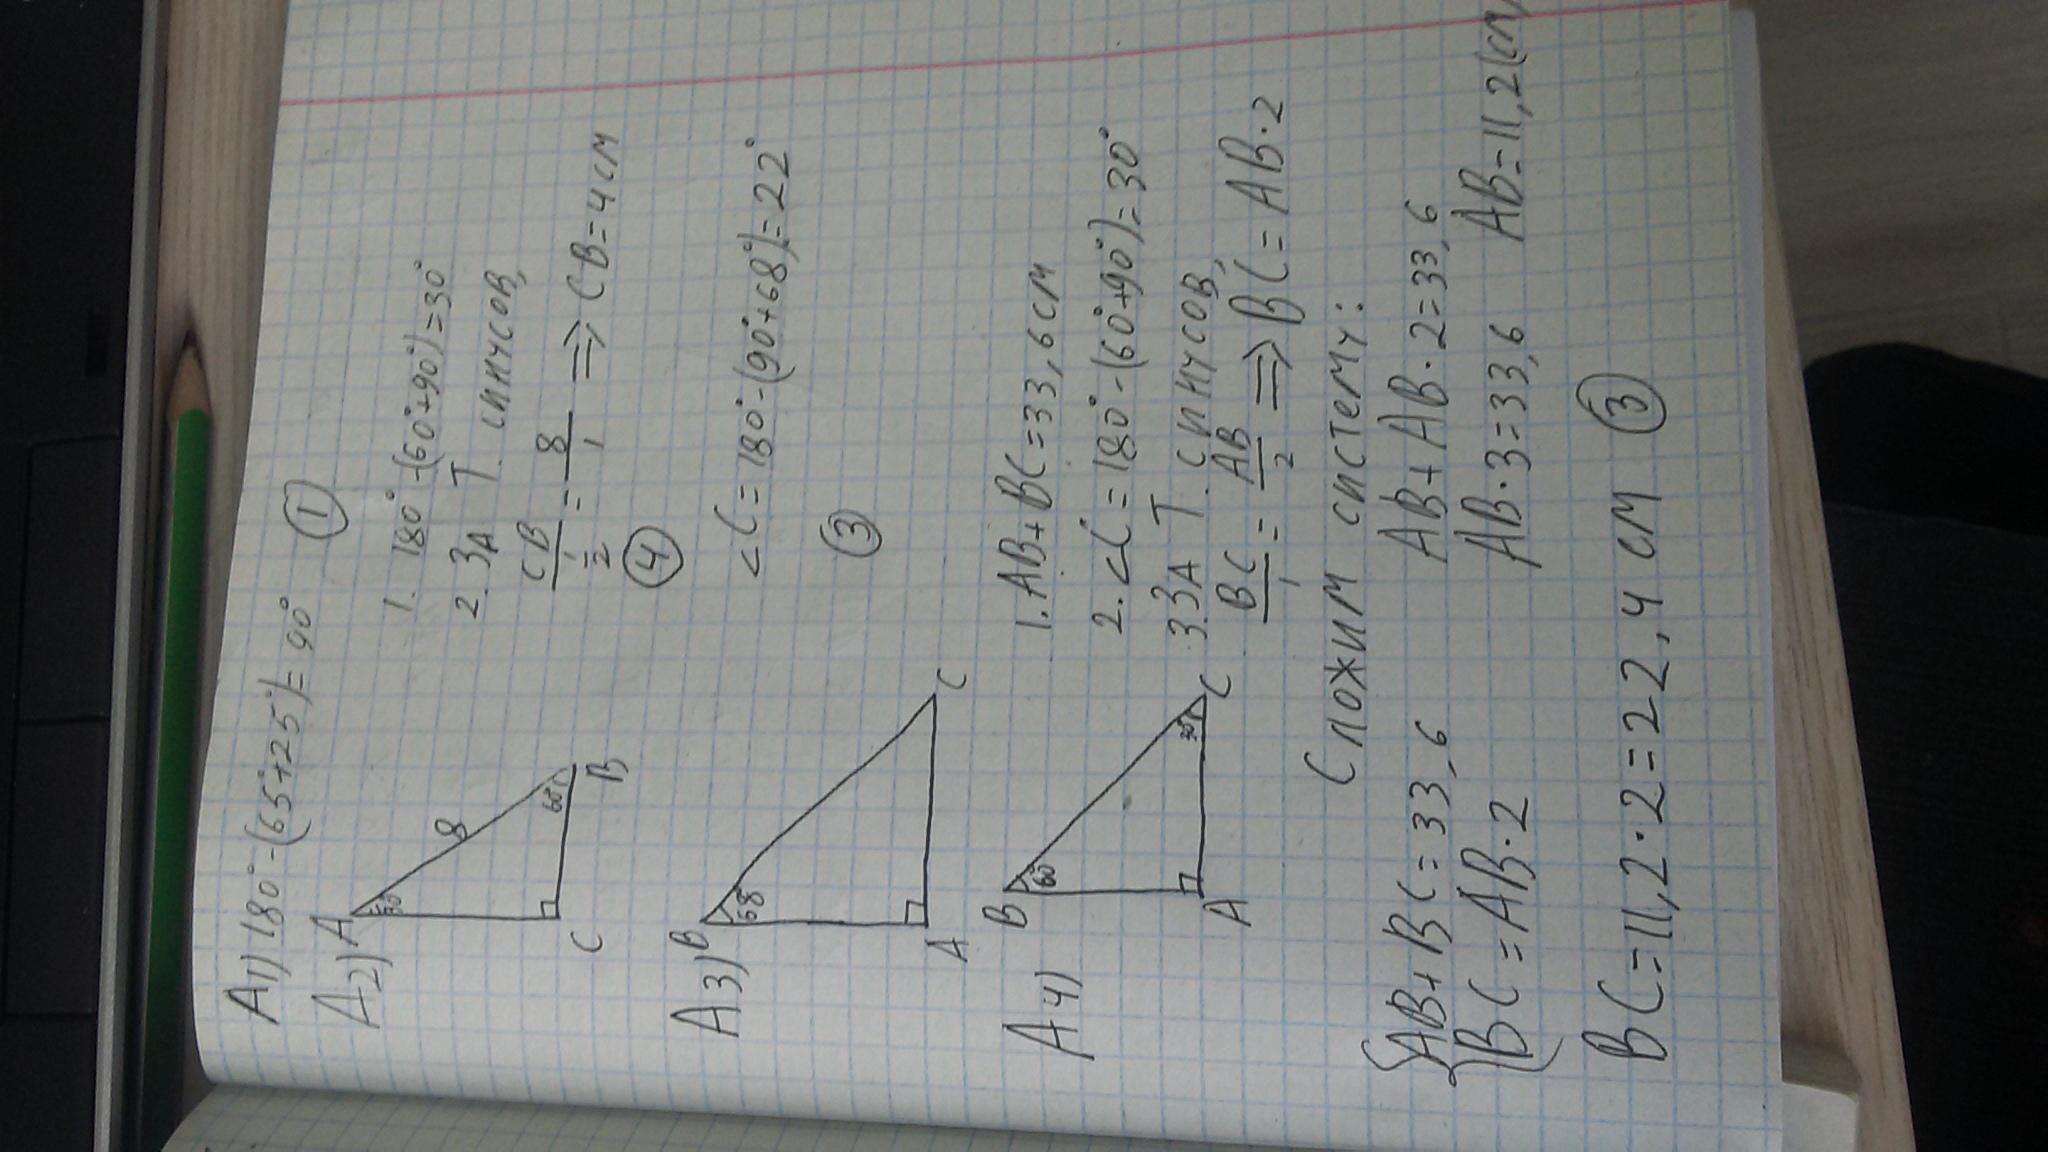 А1) 180° - (65°+25°) = 90° ①
А2) A 30° 8 60° C B
1. 180° - (60°+90°) = 30°
2. За Т. синусов,
CB/(1/2) = 8/1 => CB = 4 см
④
А3) B 68° A C
<C = 180° - (90°+68°) = 22°
③
А4) B 60° A 30° C
1. AB + BC = 33,6 см
2. <C = 180° - (60°+90°) = 30°
3. За Т. синусов,
BC/1 = AB/2 => BC = AB·2
Сложим систему:
{AB + BC = 33,6 AB + AB·2 = 33,6
{BC = AB·2 AB·3 = 33,6 AB = 11,2 (см)
BC = 11,2·2 = 22,4 см ③